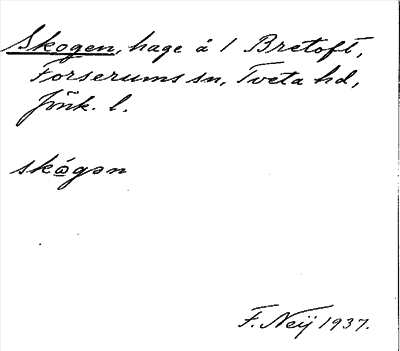 Skogen, hage å 1 Bretoft,
Forserums sn, Tveta hd,
Jönk. l.
skógən
F. Neij 1937.